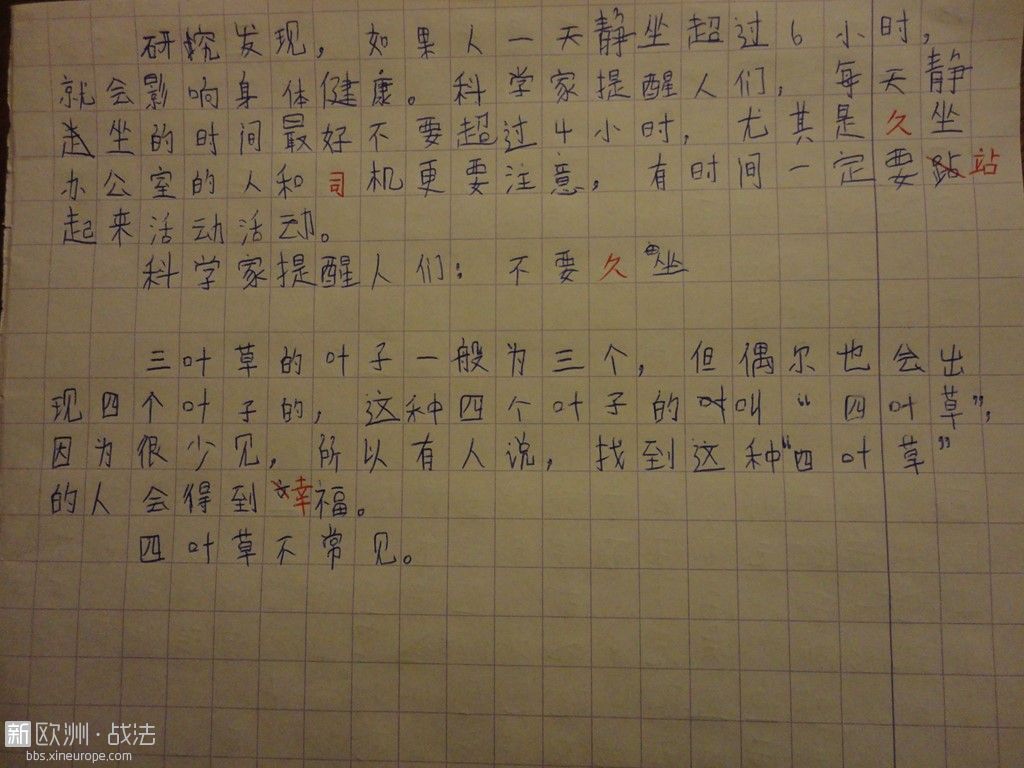 研究发现，如果人一天静坐超过6小时，
就会影响身体健康。科学家提醒人们，每天静
坐的时间最好不要超过4小时，尤其是久坐
办公室的人和司机更要注意，有时间一定要站
起来活动活动。
科学家提醒人们：不要久坐
三叶草的叶子一般为三个，但偶尔也会出
现四个叶子的，这种四个叶子的叫“四叶草”，
因为很少见，所以有人说，找到这种“四叶草”
的人会得到幸福。
四叶草不常见。
新欧洲·战法
bbs.xineurope.com